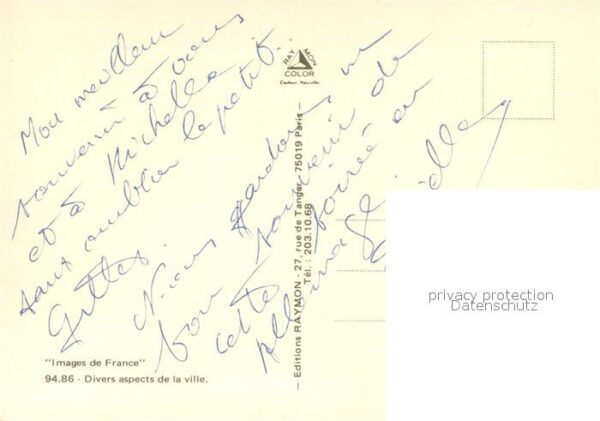 Mon meilleur
souvenir à vous
et à Michelle
sans oublier le petit...
Gilles.
Nous gardons un
bon souvenir de
cette soirée en
Allemagne
RAY MON
COLOR
Couleurs Naturelles
— Editions RAYMON - 27, rue de Tanger - 75019 Paris —
Tél. : 203.10.68
"Images de France"
94.86 - Divers aspects de la ville.
privacy protection
Datenschutz